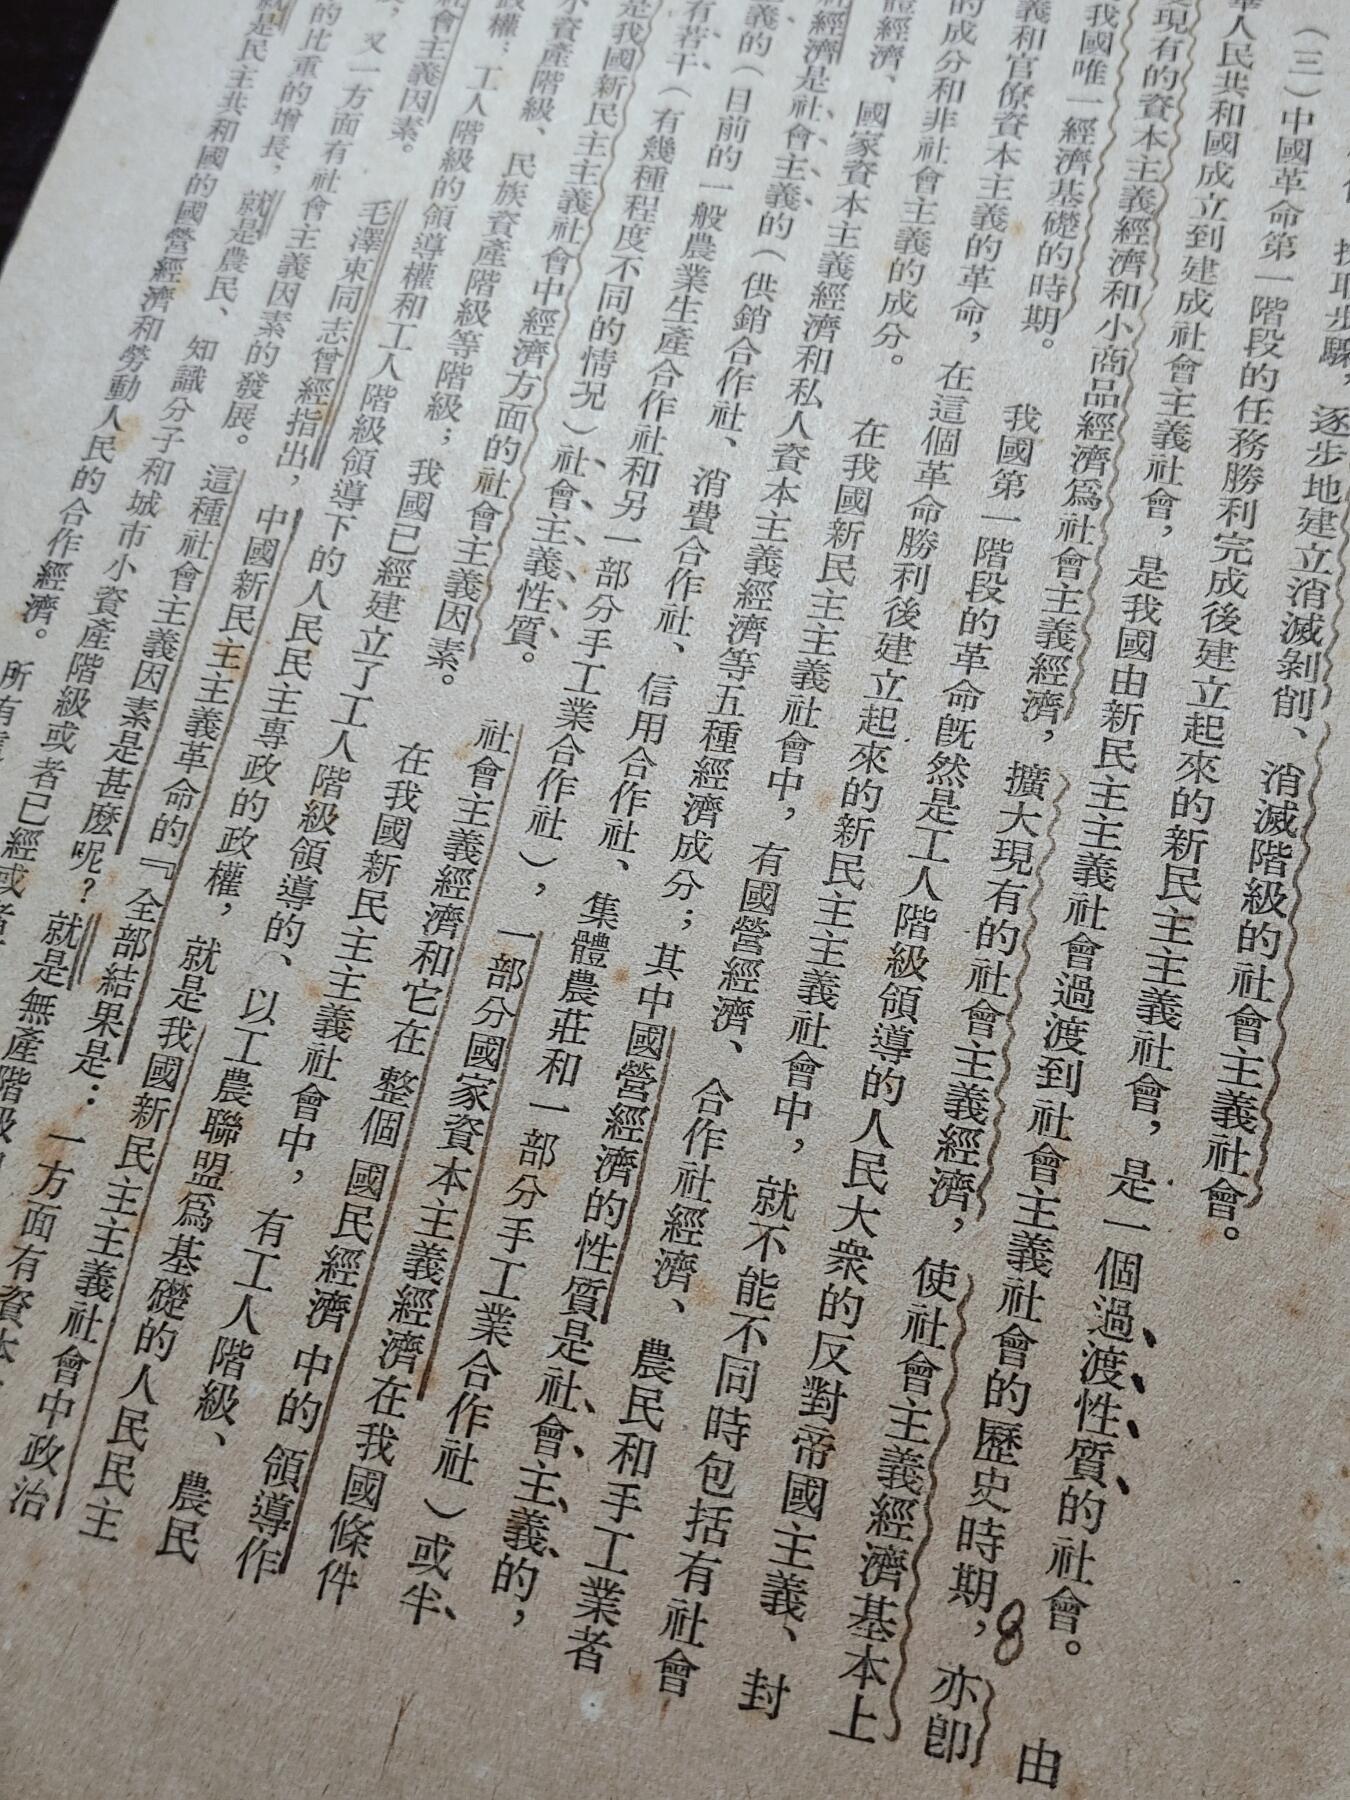 採取步驟，逐步地建立消滅剝削、消滅階級的社會主義社會。
（三）中國革命第一階段的任務勝利完成後建立起來的新民主主義社會，是一個過渡性質的社會。由
華人民共和國成立到建成社會主義社會，是我國由新民主主義社會過渡到社會主義社會的歷史時期，亦卽
變現有的資本主義經濟和小商品經濟爲社會主義經濟，擴大現有的社會主義經濟，使社會主義經濟基本上
是我國唯一經濟基礎的時期。我國第一階段的革命既然是工人階級領導的人民大衆的反對帝國主義、封
義和官僚資本主義的革命，在這個革命勝利後建立起來的新民主主義社會中，就不能不同時包括有社會
的成分和非社會主義的成分。在我國新民主主義社會中，有國營經濟、合作社經濟、農民和手工業者
體經濟、國家資本主義經濟和私人資本主義經濟等五種經濟成分；其中國營經濟的性質是社會主義的，
經濟是社會主義的（供銷合作社、消費合作社、信用合作社、集體農莊和一部分手工業合作社）或半
主義的（目前的一般農業生產合作社和另一部分手工業合作社），一部分國家資本主義經濟在我國條件
有若干（有幾種程度不同的情況）社會主義性質。社會主義經濟和它在整個國民經濟中的領導作
是我國新民主主義社會中經濟方面的社會主義因素。在我國新民主主義社會中，有工人階級、農民
小資產階級、民族資產階級等階級；我國已經建立了工人階級領導的、以工農聯盟爲基礎的人民民主
政權：工人階級的領導權和工人階級領導下的人民民主專政的政權，就是我國新民主主義社會中政治
社會主義因素。毛澤東同志曾經指出，中國新民主主義革命的『全部結果是：一方面有資本
，又一方面有社會主義因素的發展。這種社會主義因素是甚麽呢？就是無產階級
的比重的增長，就是農民、知識分子和城市小資產階級或者已經或者
就是民主共和國的國營經濟和勞動人民的合作經濟。所有
8